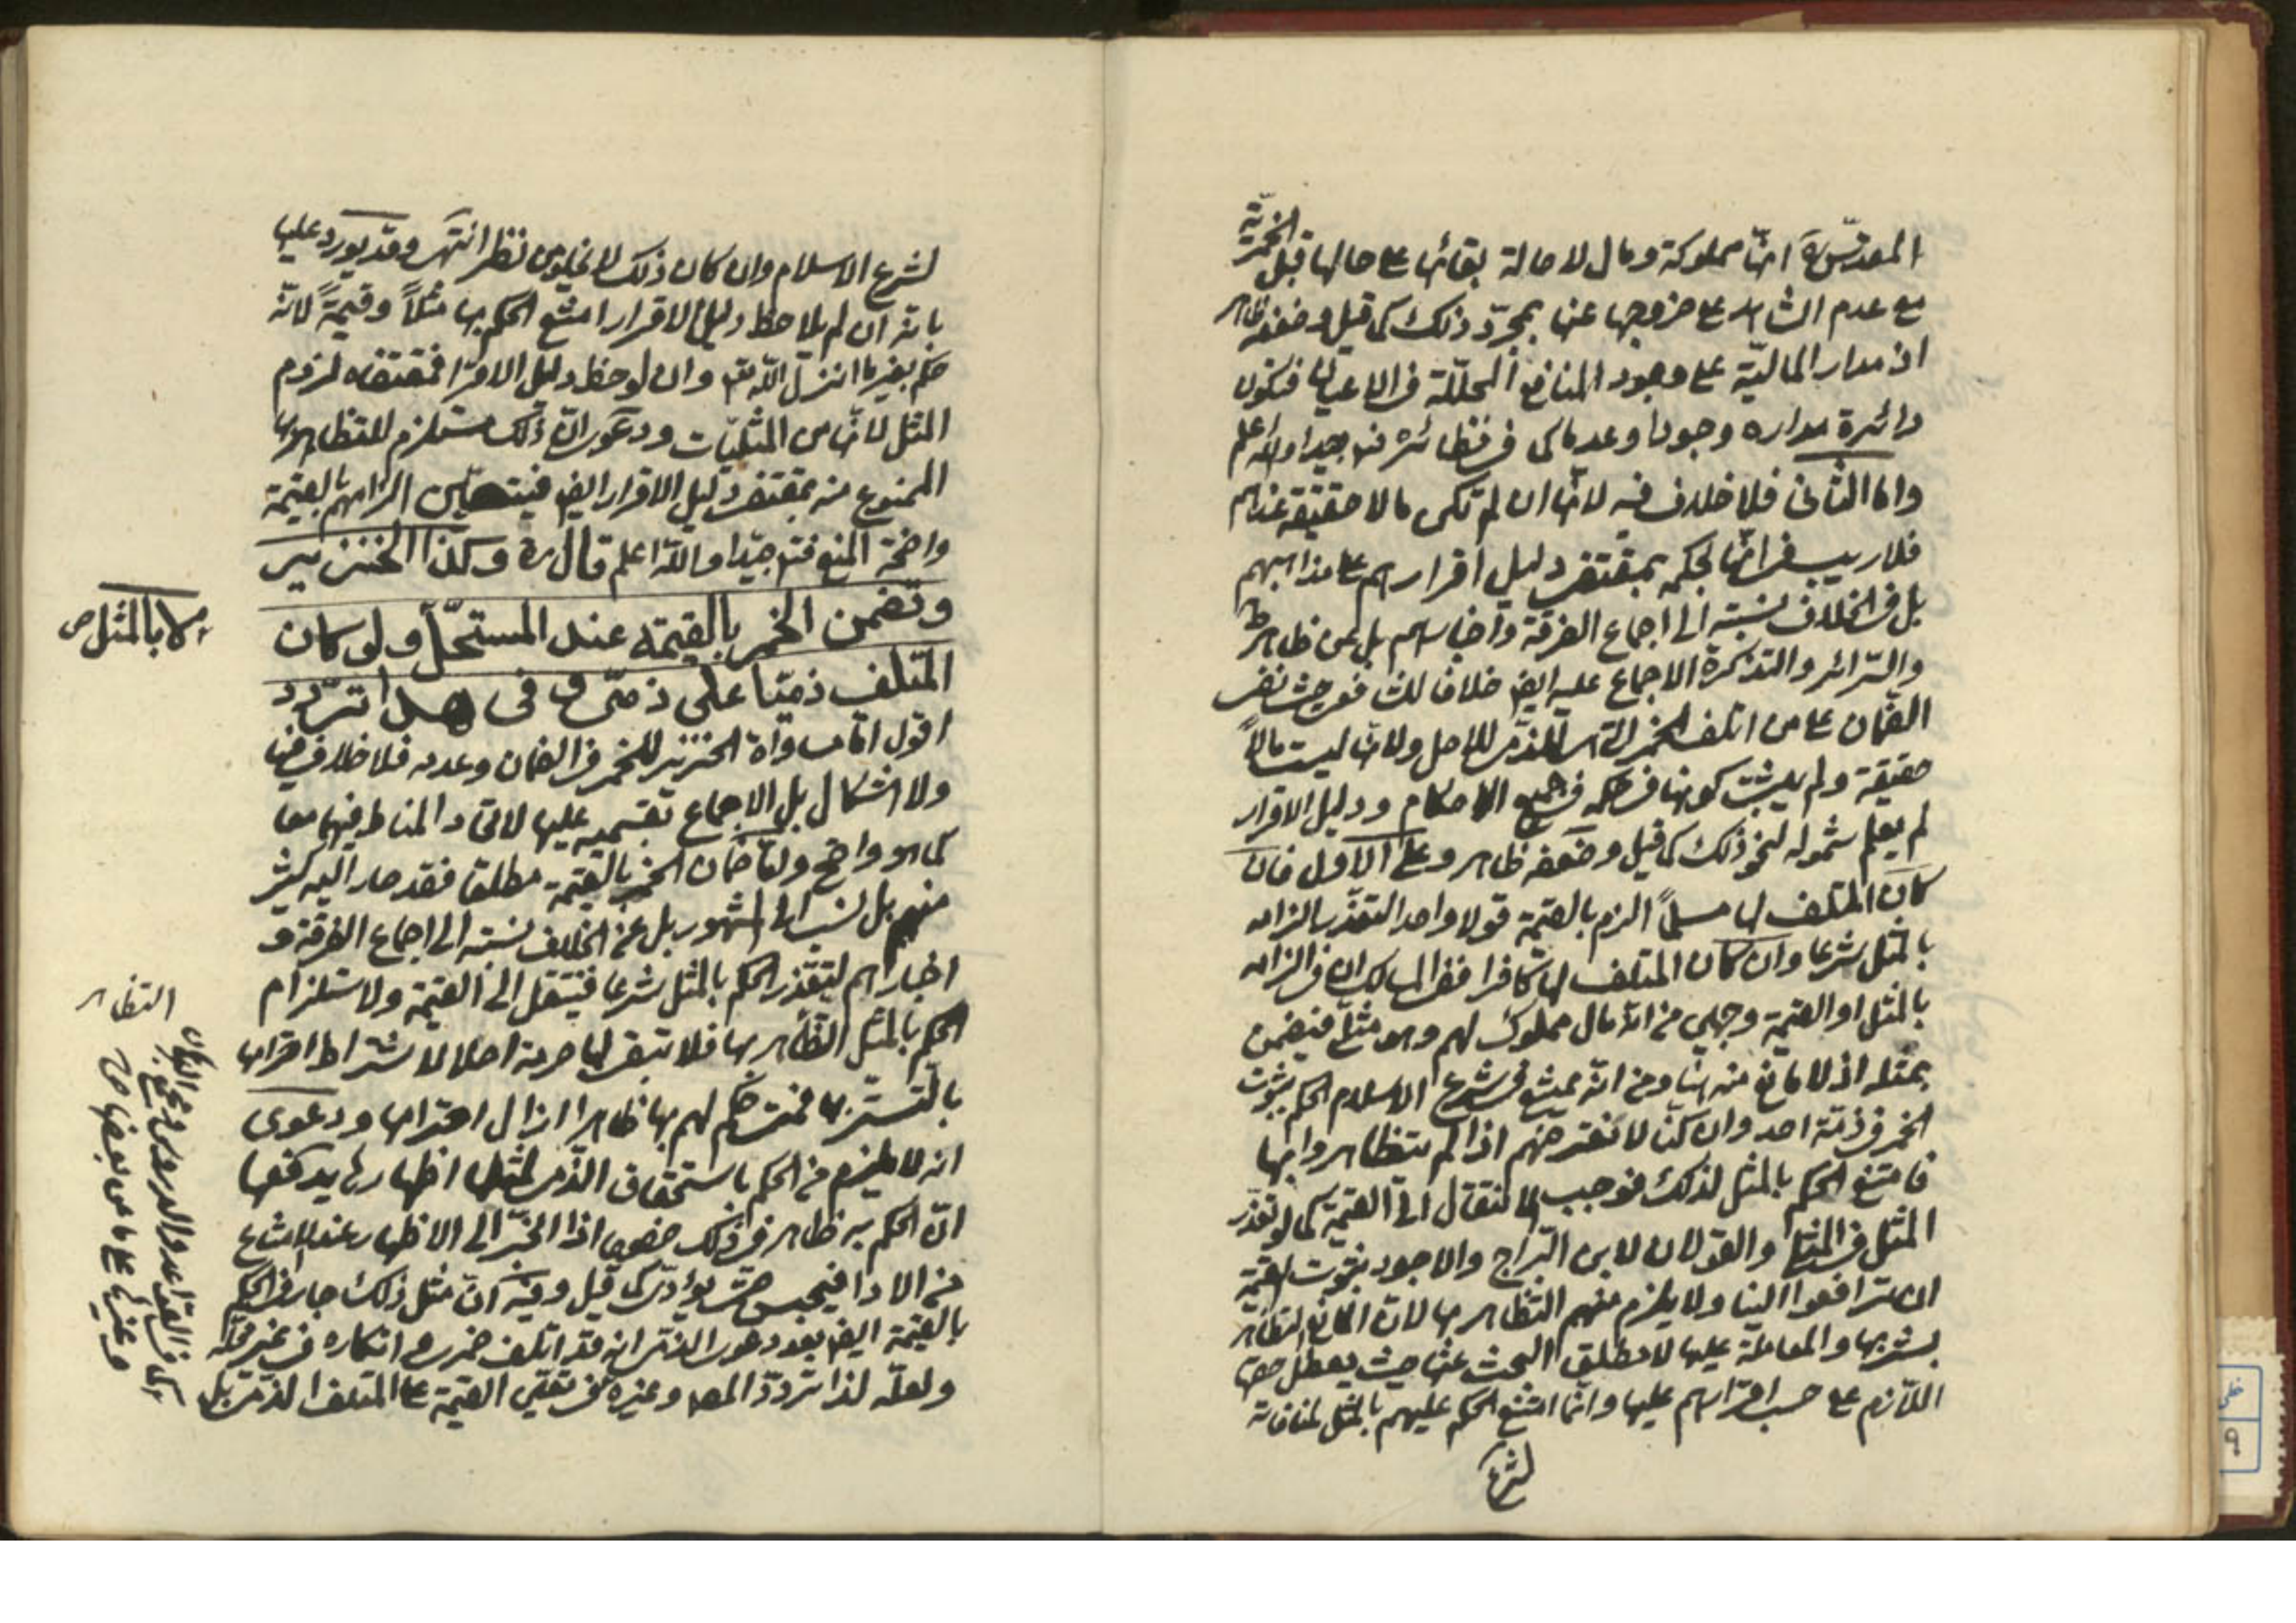 المقدس ره انها مملوكة ومال لاصالة بقائها على حالها قبل الخمرية
مع عدم الشاهد على خروجها عنها بمجرد ذلك كما قيل وضعفه ظاهر
اذ مدار المالية على وجود المنافع المحللة فى الاعيان فتكون
دائرة مداره وجودا وعدما كما فى نظائره فتدبر جيدا والله اعلم
واما الثانى فلا خلاف فيه لانها ان لم تكن مالا حقيقة عندهم
فلا ريب فى انها بحكمه بمقتضى دليل اقرارهم على مذاهبهم
بل فى الخلاف نسبته الى اجماع الفرقة واخبارهم بل عن ظاهر ط
والسرائر والتذكرة الاجماع عليه ايضا خلافا للشافعى حيث نفى
الضمان على من اتلف الخمر التى للذمى للاصل ولانها ليست مالا
حقيقة ولم يثبت كونها فى حكمه فى جميع الاحكام ودليل الاقرار
لم يعلم شموله لنحو ذلك كما قيل وضعفه ظاهر وعلى الاول فان
كان المتلف لها مسلما الزم بالقيمة قولا واحدا لتعذر الزامه
بالمثل شرعا وان كان المتلف لها كافرا ففى المسالك ان فى الزامه
بالمثل او القيمة وجهين من انه مال مملوك لهم وهو مثلى فيضمن
بمثله اذ لا مانع منه هنا ومن انه يمتنع فى شرع الاسلام الحكم بثبوت
الخمر فى ذمة احد وان كنا لا نعترضهم اذا لم يتظاهروا بها
فامتنع الحكم بالمثل لذلك فوجب الانتقال الى القيمة كما لو تعذر
المثل فى المثلى والقولان لابن البراج والاجود ثبوت القيمة
ان ترافعوا الينا ولا يلزم منهم التظاهر بها لان المانع التظاهر
بشربها والمعاملة عليها لا مطلق البحث عنها حيث يعطل حقها
اللازم على حسب اقرارهم عليها وانما امتنع الحكم عليهم بالمثل لمنافاته
لشرع
لشرع الاسلام وان كان ذلك لا يخلو من نظر انتهى وقد يورد عليه
بانه ان لم يلاحظ دليل الاقرار امتنع الحكم بها مثلا وقيمة لانه
حكم بغير ما انزل الله تع وان لوحظ دليل الاقرار فمقتضاه لزوم
المثل لانها من المثليات ودعوى ان ذلك مستلزم للتظاهر بها
الممنوع منه بمقتضى دليل الاقرار ايضا فيتعين الزامهم بالقيمة
واضحة المنع فتدبر جيدا والله اعلم قال ره وكذا الخنزير
وتضمن الخمر بالقيمة عند المستحل ولو كان
لا بالمثل ص
المتلف ذميا على ذمى وفى هذا تردد
اقول اما مساواة الخنزير للخمر فى الضمان وعدمه فلا خلاف فيها
ولا اشكال بل الاجماع بقسميه عليها لاتحاد المناط فيهما معا
كما هو واضح واما ضمان الخمر بالقيمة مطلقا فقد صار اليه كثير
منهم بل نسب الى المشهور بل عن الخلاف نسبته الى اجماع الفرقة و
اخبارهم لتعذر الحكم بالمثل شرعا فينتقل الى القيمة ولاستلزام
الحكم بالمثل التظاهر بها فلا تبقى لها حرمة اصلا لاشتراط اقرارها
بالتستر بها فمتى حكم لهم بها ظاهرا زال احترامها ودعوى
انه لا يلزم من الحكم باستحقاق الذمى لمثلها اظهارها يدفعها
ان الحكم به ظاهر فى ذلك خصوصا اذا انجر الى الاظهار عند الامتناع
من الاداء فيحبس حتى يؤدى كما قيل وفيه ان مثل ذلك جار فى الحكم
بالقيمة ايضا بعد دعوى الذمى انه قد اتلف خمره انكاره فى غير محله
ولعله لذا تردد المصـ وغيره فى تعين القيمة على المتلف الذمى بل
التظاهر